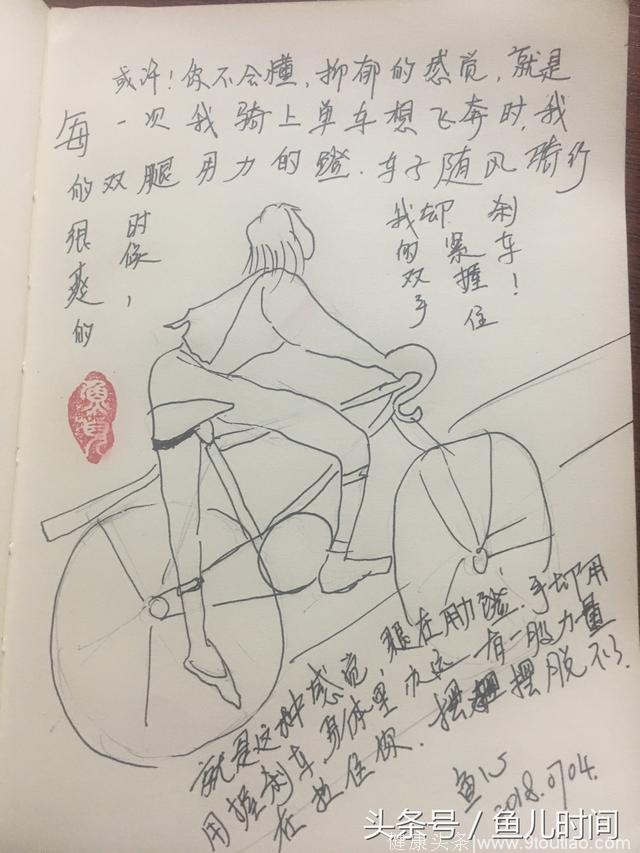 或许！你不会懂，抑郁的感觉，就是
每一次我骑上单车想飞奔时，我
的双腿用力的蹬．车子随风骑行
很爽的
时候，
我的双手
却紧握住
刹车！
就是这种感觉，腿在用力蹬．手却用
用握刹车，身体里永远有一股力量
在拉住你．摆脱不了．
2018.07.04.
头条号／鱼儿时间
健康头条 www.9toutiao.com